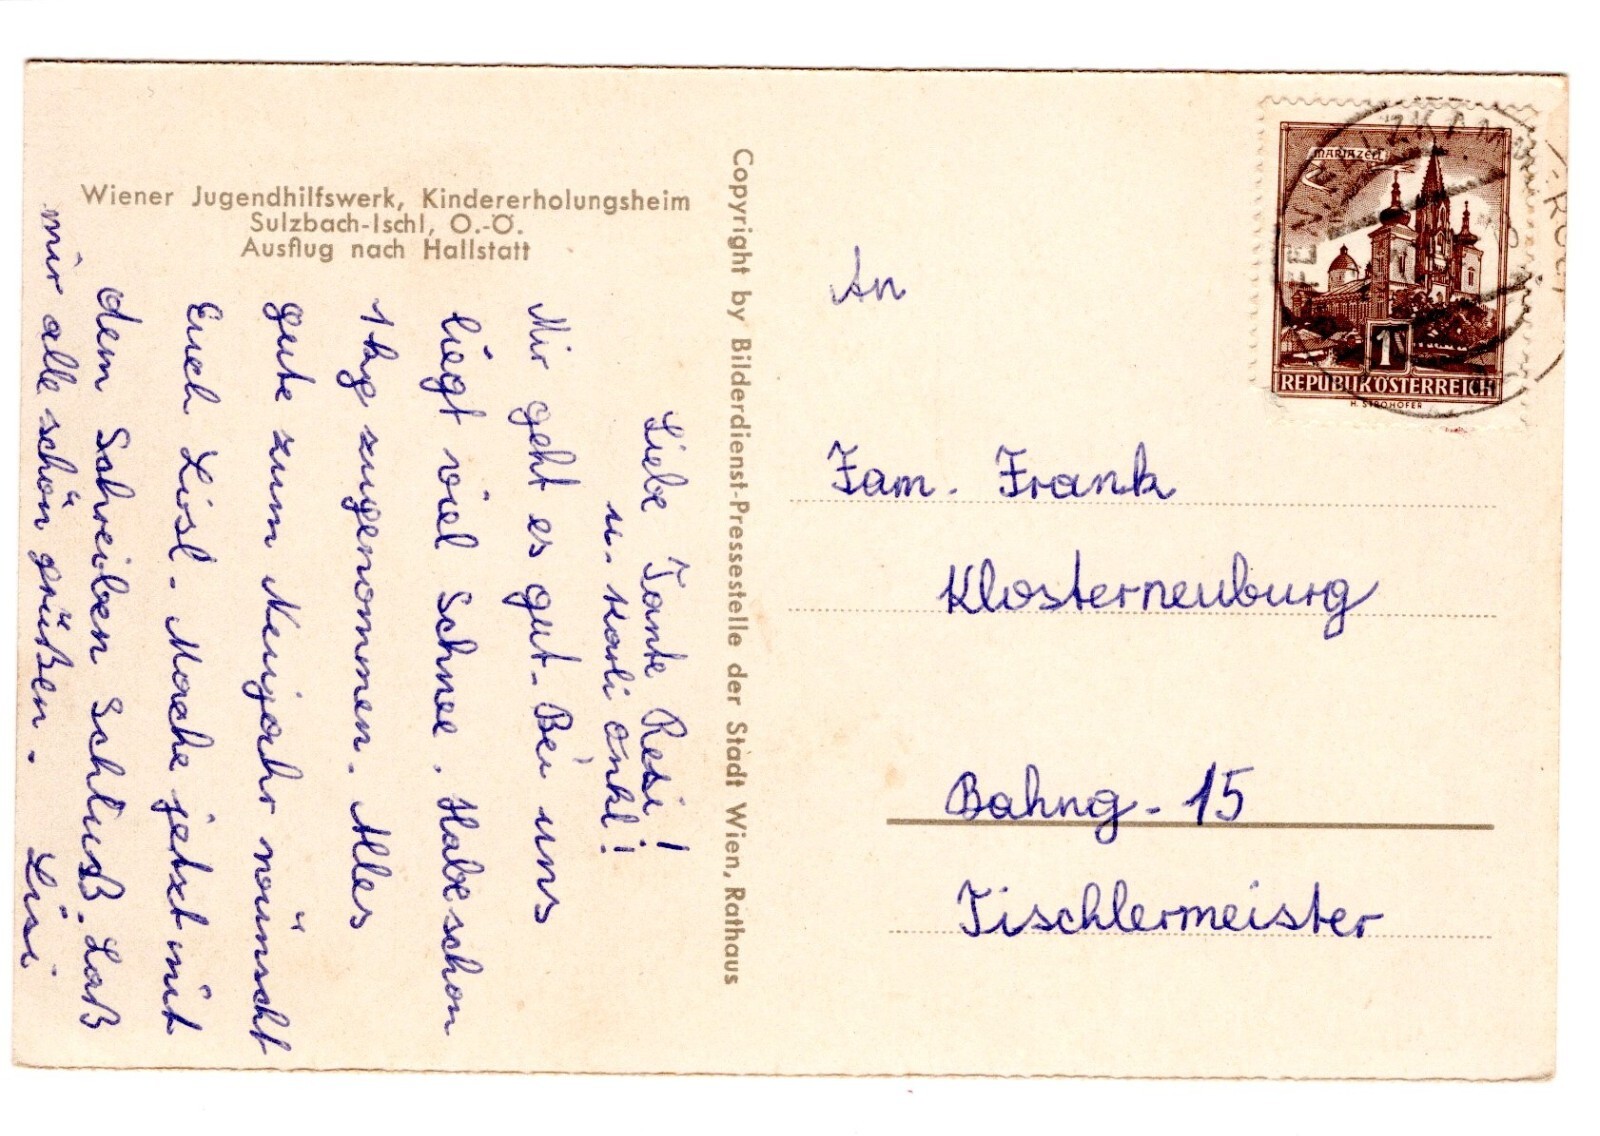 Wiener Jugendhilfswerk, Kindererholungsheim
Sulzbach-Ischl, O.-Ö.
Ausflug nach Hallstatt
Liebe Tante Resi!
u. Karli Onkl!
Mir geht es gut. Bei uns
liegt viel Schnee. Habe schon
1 kg zugenommen. Alles
gute zum Neujahr wünscht
Euch Liesl. Mache jetzt mit
dem Schreiben Schluß. Laß
mir alle schön grüßen. Lisi
Copyright by Bilderdienst-Pressestelle der Stadt Wien, Rathaus
MARIAZELL
1
REPUBLIK ÖSTERREICH
H. STROHOFER
An
Fam. Frank
Klosterneuburg
Bahng. 15
Tischlermeister